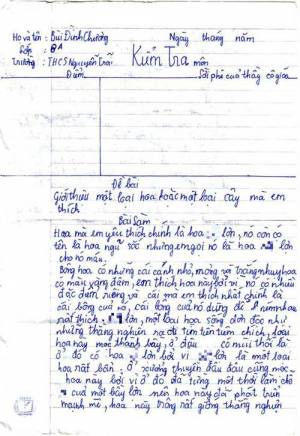 Họ và tên: Bùi Đình Chương Ngày tháng năm
Lớp: 8A
Trường: THCS Nguyễn Trãi Kiểm Tra môn
Điểm Lời phê của thầy cô giáo
Đề bài
Giới thiệu một loại hoa hoặc một loại cây mà em
thích
Bài Làm
Hoa mà em yêu thích chính là hoa lớn, nó còn có
tên là hoa ngũ sắc nhưng em gọi nó là hoa lớn
cho nó máu.
Bông hoa có những cái cánh nhỏ, mỏng và trắng nhụy hoa
có màu vàng đậm, em thích hoa này bởi vì, nó có nhiều
đặc điểm riêng và cái mà em thích nhất chính là
cái bông của nó, cái bông của nó dùng để
rất thích lớn, một loài hoa sống đời độc như
những thằng nghiện ra đi tìm tiêm chích, loài
hoa này mọc thành bầy, ở đâu có mùi thối là
ở đó có hoa lớn bởi vì lớn là một loại
hoa rất bẩn. Ở xương thuyền đâu đâu cũng mọc
hoa này bởi vì ở đó đã từng một thời làm chỗ
của một bầy lớn nên hoa này đã phát triển
mạnh mẽ, hoa này trông rất giống thằng nghiện